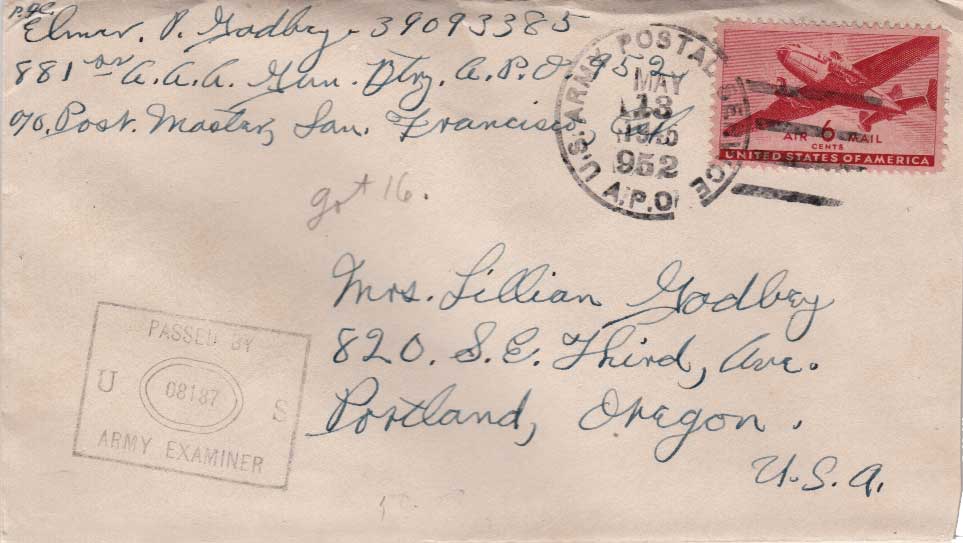 Pfc.
Elmer. P. Godbey - 39093385
881 st A.A.A. Gun. Btry. A.P.O. 952
c/o. Post. Master, San. Francisco, Calif
U.S. ARMY POSTAL SERVICE
MAY
13
952
A.P.O.
AIR 6 MAIL
CENTS
UNITED STATES OF AMERICA
got 16.
Mrs. Lillian Godbey
820. S.E. Third, Ave.
Portland, Oregon.
U.S.A.
PASSED BY
U 08187 S
ARMY EXAMINER